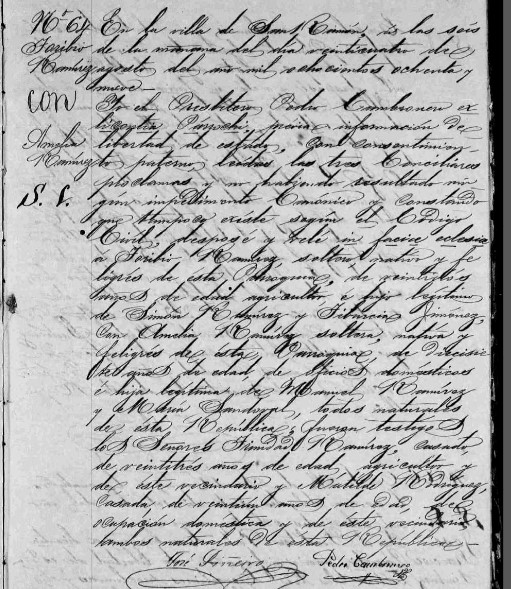 Nº 64
Toribio
Ramirez
con
Amelia
Ramirez
S. C.
En la villa de San Ramón, á las seis
de la mañana del dia veinticuatro de
agosto del año mil ochocientos ochenta y
nueve—
Yo el Presbitero Pedro Cambronero ex
licentia Parochi, previa información de
libertad de estado, con consentimien-
to paterno leidas las tres Conciliares
proclamas y no habiendo resultado nin
gun impedimento Canonico y constando
que tampoco existe según el Código
Civil, desposé y velé in facie eclesia
a Toribio Ramirez soltero, nativo y fe
ligrés de esta Parroquia, de veintidos
años de edad, agricultor, é hijo legitimo
de Simón Ramirez y Jimenez,
con Amelia Ramirez soltera, nativa y
feligres de esta Parroquia de diecisie
te años de edad, de oficios domesticos
é hija legitima de Manuel Ramirez
y Maria Sandoval, todos naturales
de esta Republica; fueron testigos
los Señores Trinidad Ramirez, casado,
de veintitres años de edad, agricultor y
de este vecindario y Matilde Rodriguez,
casada de veintiun años de edad, de
ocupación domestica y de este vecindario
ambos naturales de esta Republica—
José Pedro Cambronero